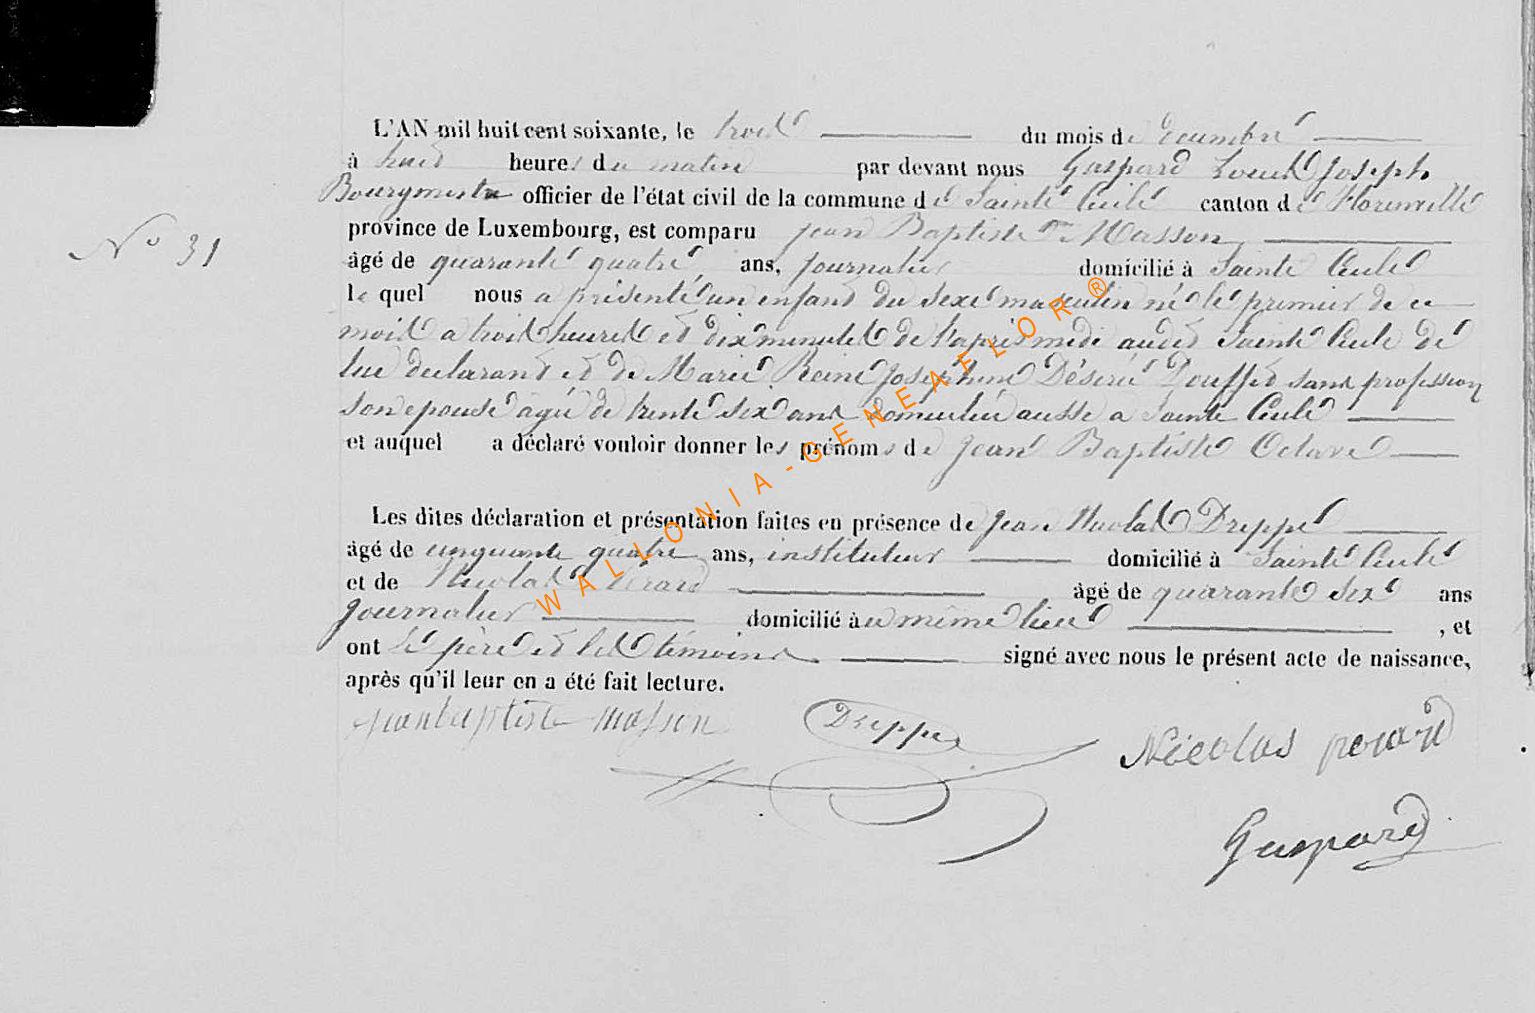 L'AN mil huit cent soixante, le trois du mois de Décembre
à huit heures du matin par devant nous Gaspard Louis Joseph
Bourgmestre officier de l'état civil de la commune de Sainte Cécile canton de Florenville
N° 31
province de Luxembourg, est comparu Jean Baptiste Masson
âgé de quarante quatre ans, journalier domicilié à Sainte Cécile
le quel nous a présenté un enfant du sexe masculin né le premier de ce
mois a trois heures et dix minutes de l'après midi audit Sainte Cécile de
lui déclarant et de Marie Reine Josephine Désirée Pouffet sans profession
son epouse agée de trente six ans domiciliée aussi a Sainte Cécile
et auquel a déclaré vouloir donner les prénoms de Jean Baptiste Octave
Les dites déclaration et présentation faites en présence de Jean Nicolas Dreppe
âgé de cinquante quatre ans, instituteur domicilié à Sainte Cécile
et de Nicolas âgé de quarante six ans
journalier domicilié au même lieu , et
ont le père et les témoins signé avec nous le présent acte de naissance,
après qu'il leur en a été fait lecture.
jean baptiste masson Dreppe Nicolas
Gaspard
WALLONIA-GENEAFLOR®